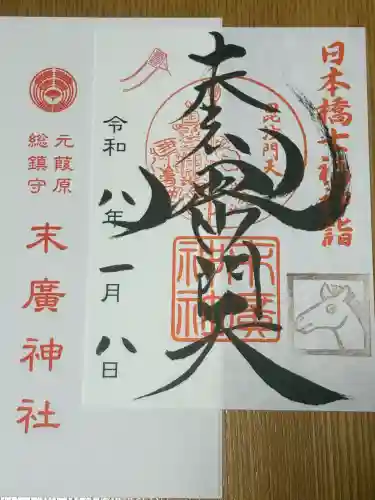 日本橋七福神詣
毘沙門天
末廣神社
令和八年一月八日
元葭原
総鎮守
末廣神社